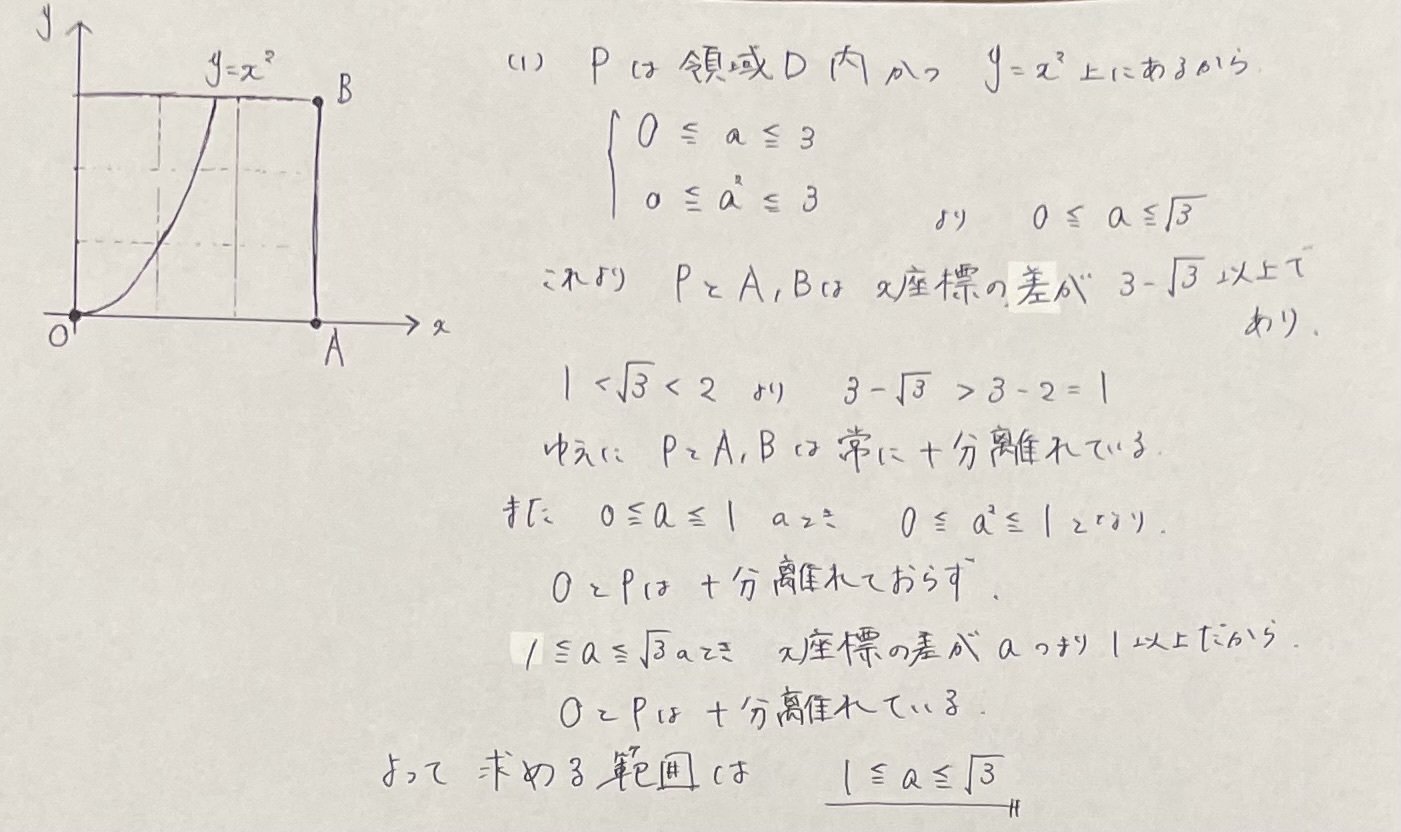 y
y=x²
B
O
A
x
(1) Pは領域D内かつ y=x²上にあるから
0≦a≦3
0≦a²≦3
より 0≦a≦√3
これより PとA,Bは x座標の差が 3-√3 以上で
あり.
1<√3<2 より 3-√3>3-2=1
ゆえに PとA,Bは常に十分離れている.
また 0≦a≦1 のとき 0≦a²≦1となり.
OとPは十分離れておらず.
1≦a≦√3のとき x座標の差が aつまり1以上だから.
OとPは十分離れている.
よって求める範囲は 1≦a≦√3